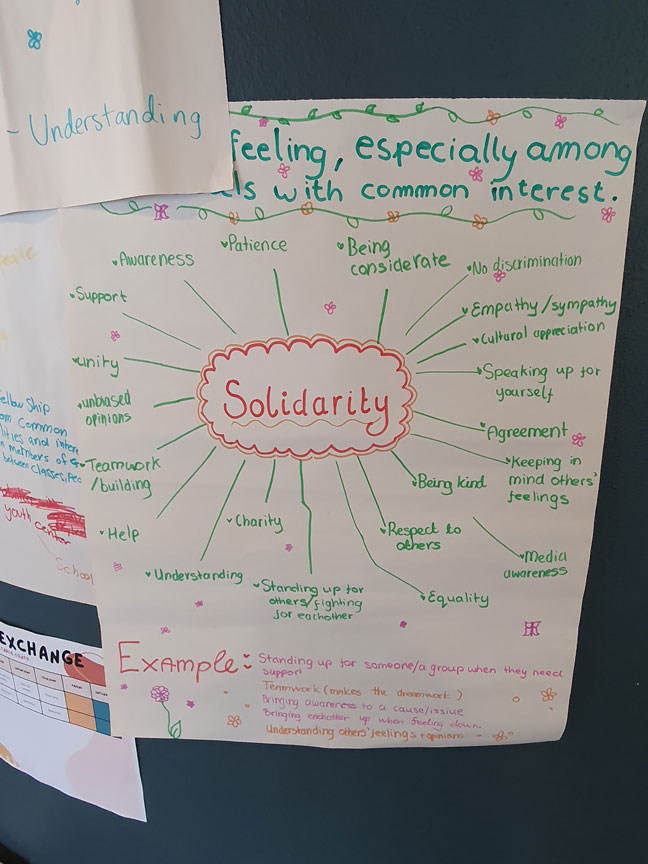 - Understanding
feeling, especially among
with common interest.
Patience
Being
considerate
Awareness
No discrimination
Support
Empathy/sympathy
Cultural appreciation
unity
Speaking up for
yourself
Solidarity
unbiased
opinions
Agreement
Teamwork
/building
Keeping in
mind others'
feelings
Being kind
Help
Charity
Respect to
others
Media
awareness
Understanding
Standing up for
others/fighting
for eachother
Equality
Example:
Standing up for someone/a group when they need
support
Teamwork (makes the dreamwork)
Bringing awareness to a cause/issue
Bringing eachother up when feeling down.
Understanding others' feelings + opinions
ellowship
om Common
lities and inter
members of
between classes,
youth center
School
EXCHANGE